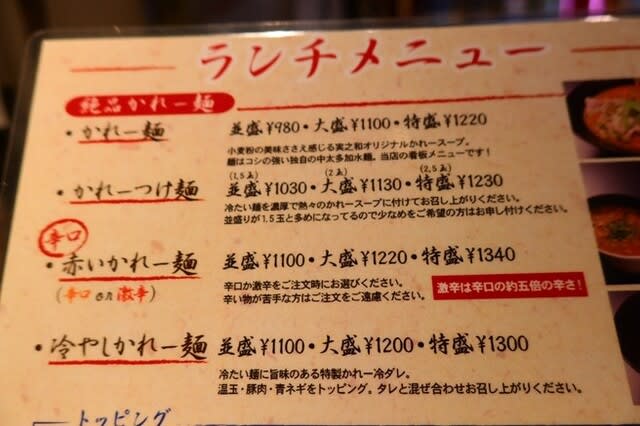 ランチメニュー
絶品かれー麺
・かれー麺 並盛¥980・大盛¥1100・特盛¥1220
小麦粉の美味ささえ感じる実之和オリジナルかれースープ。
麺はコシの強い独自の中太多加水麺。当店の看板メニューです!
(1,5玉) (2玉) (2,5玉)
・かれーつけ麺 並盛¥1030・大盛¥1130・特盛¥1230
冷たい麺を濃厚で熱々のかれースープに付けてお召し上がりください。
並盛りが1.5玉と多めになってるので少なめをご希望の方はお申し付けください。
辛口
・赤いかれー麺 並盛¥1100・大盛¥1220・特盛¥1340
(辛口 or 激辛)
辛口か激辛をご注文時にお選びください。
辛い物が苦手な方はご注文をご遠慮ください。
激辛は辛口の約五倍の辛さ!
・冷やしかれー麺 並盛¥1100・大盛¥1200・特盛¥1300
冷たい麺に旨味のある特製かれー冷ダレ。
温玉・豚肉・青ネギをトッピング。タレと混ぜ合わせお召し上がりください。
トッピング